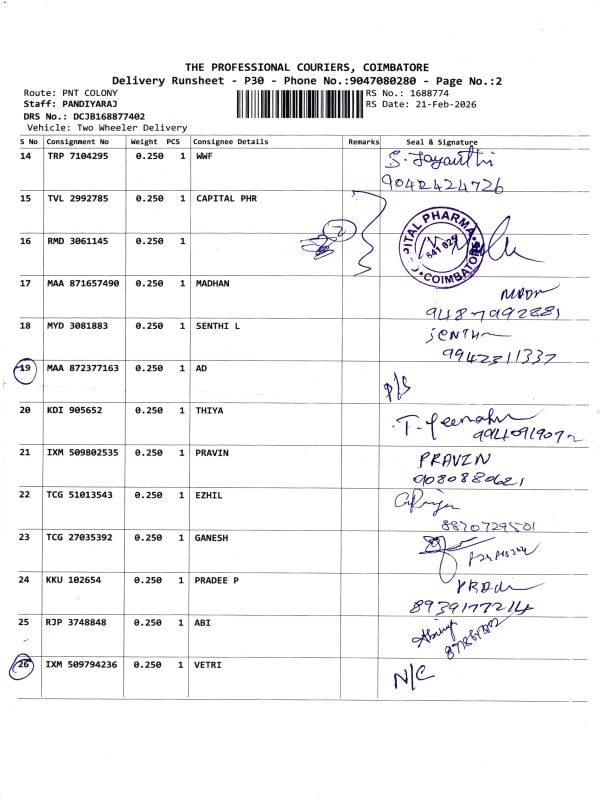 THE PROFESSIONAL COURIERS, COIMBATORE
Delivery Runsheet - P30 - Phone No.:9047080280 - Page No.:2
Route: PNT COLONY RS No.: 1688774
Staff: PANDIYARAJ RS Date: 21-Feb-2026
DRS No.: DCJB168877402
Vehicle: Two Wheeler Delivery
S No Consignment No Weight PCS Consignee Details Remarks Seal & Signature
14 TRP 7104295 0.250 1 WWF S. Jayanthi
9042424726
15 TVL 2992785 0.250 1 CAPITAL PHR
16 RMD 3061145 0.250 1 2
CAPITAL PHARMA
641 025
COIMBATORE
17 MAA 871657490 0.250 1 MADHAN
9487992881
18 MYD 3081883 0.250 1 SENTHI L
9942311337
19 MAA 872377163 0.250 1 AD
20 KDI 905652 0.250 1 THIYA
21 IXM 509802535 0.250 1 PRAVIN PRAVIN
9080880621
22 TCG 51013543 0.250 1 EZHIL
8870729501
23 TCG 27035392 0.250 1 GANESH
24 KKU 102654 0.250 1 PRADEE P
8939177214
25 RJP 3748848 0.250 1 ABI
26 IXM 509794236 0.250 1 VETRI N/C